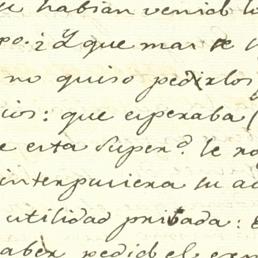 habian venido
po. ¿Y que mas
no quiso pedirlos
cios: que esperaba
esta Super.^d le
interpusiera su
utilidad privada:
pedido el